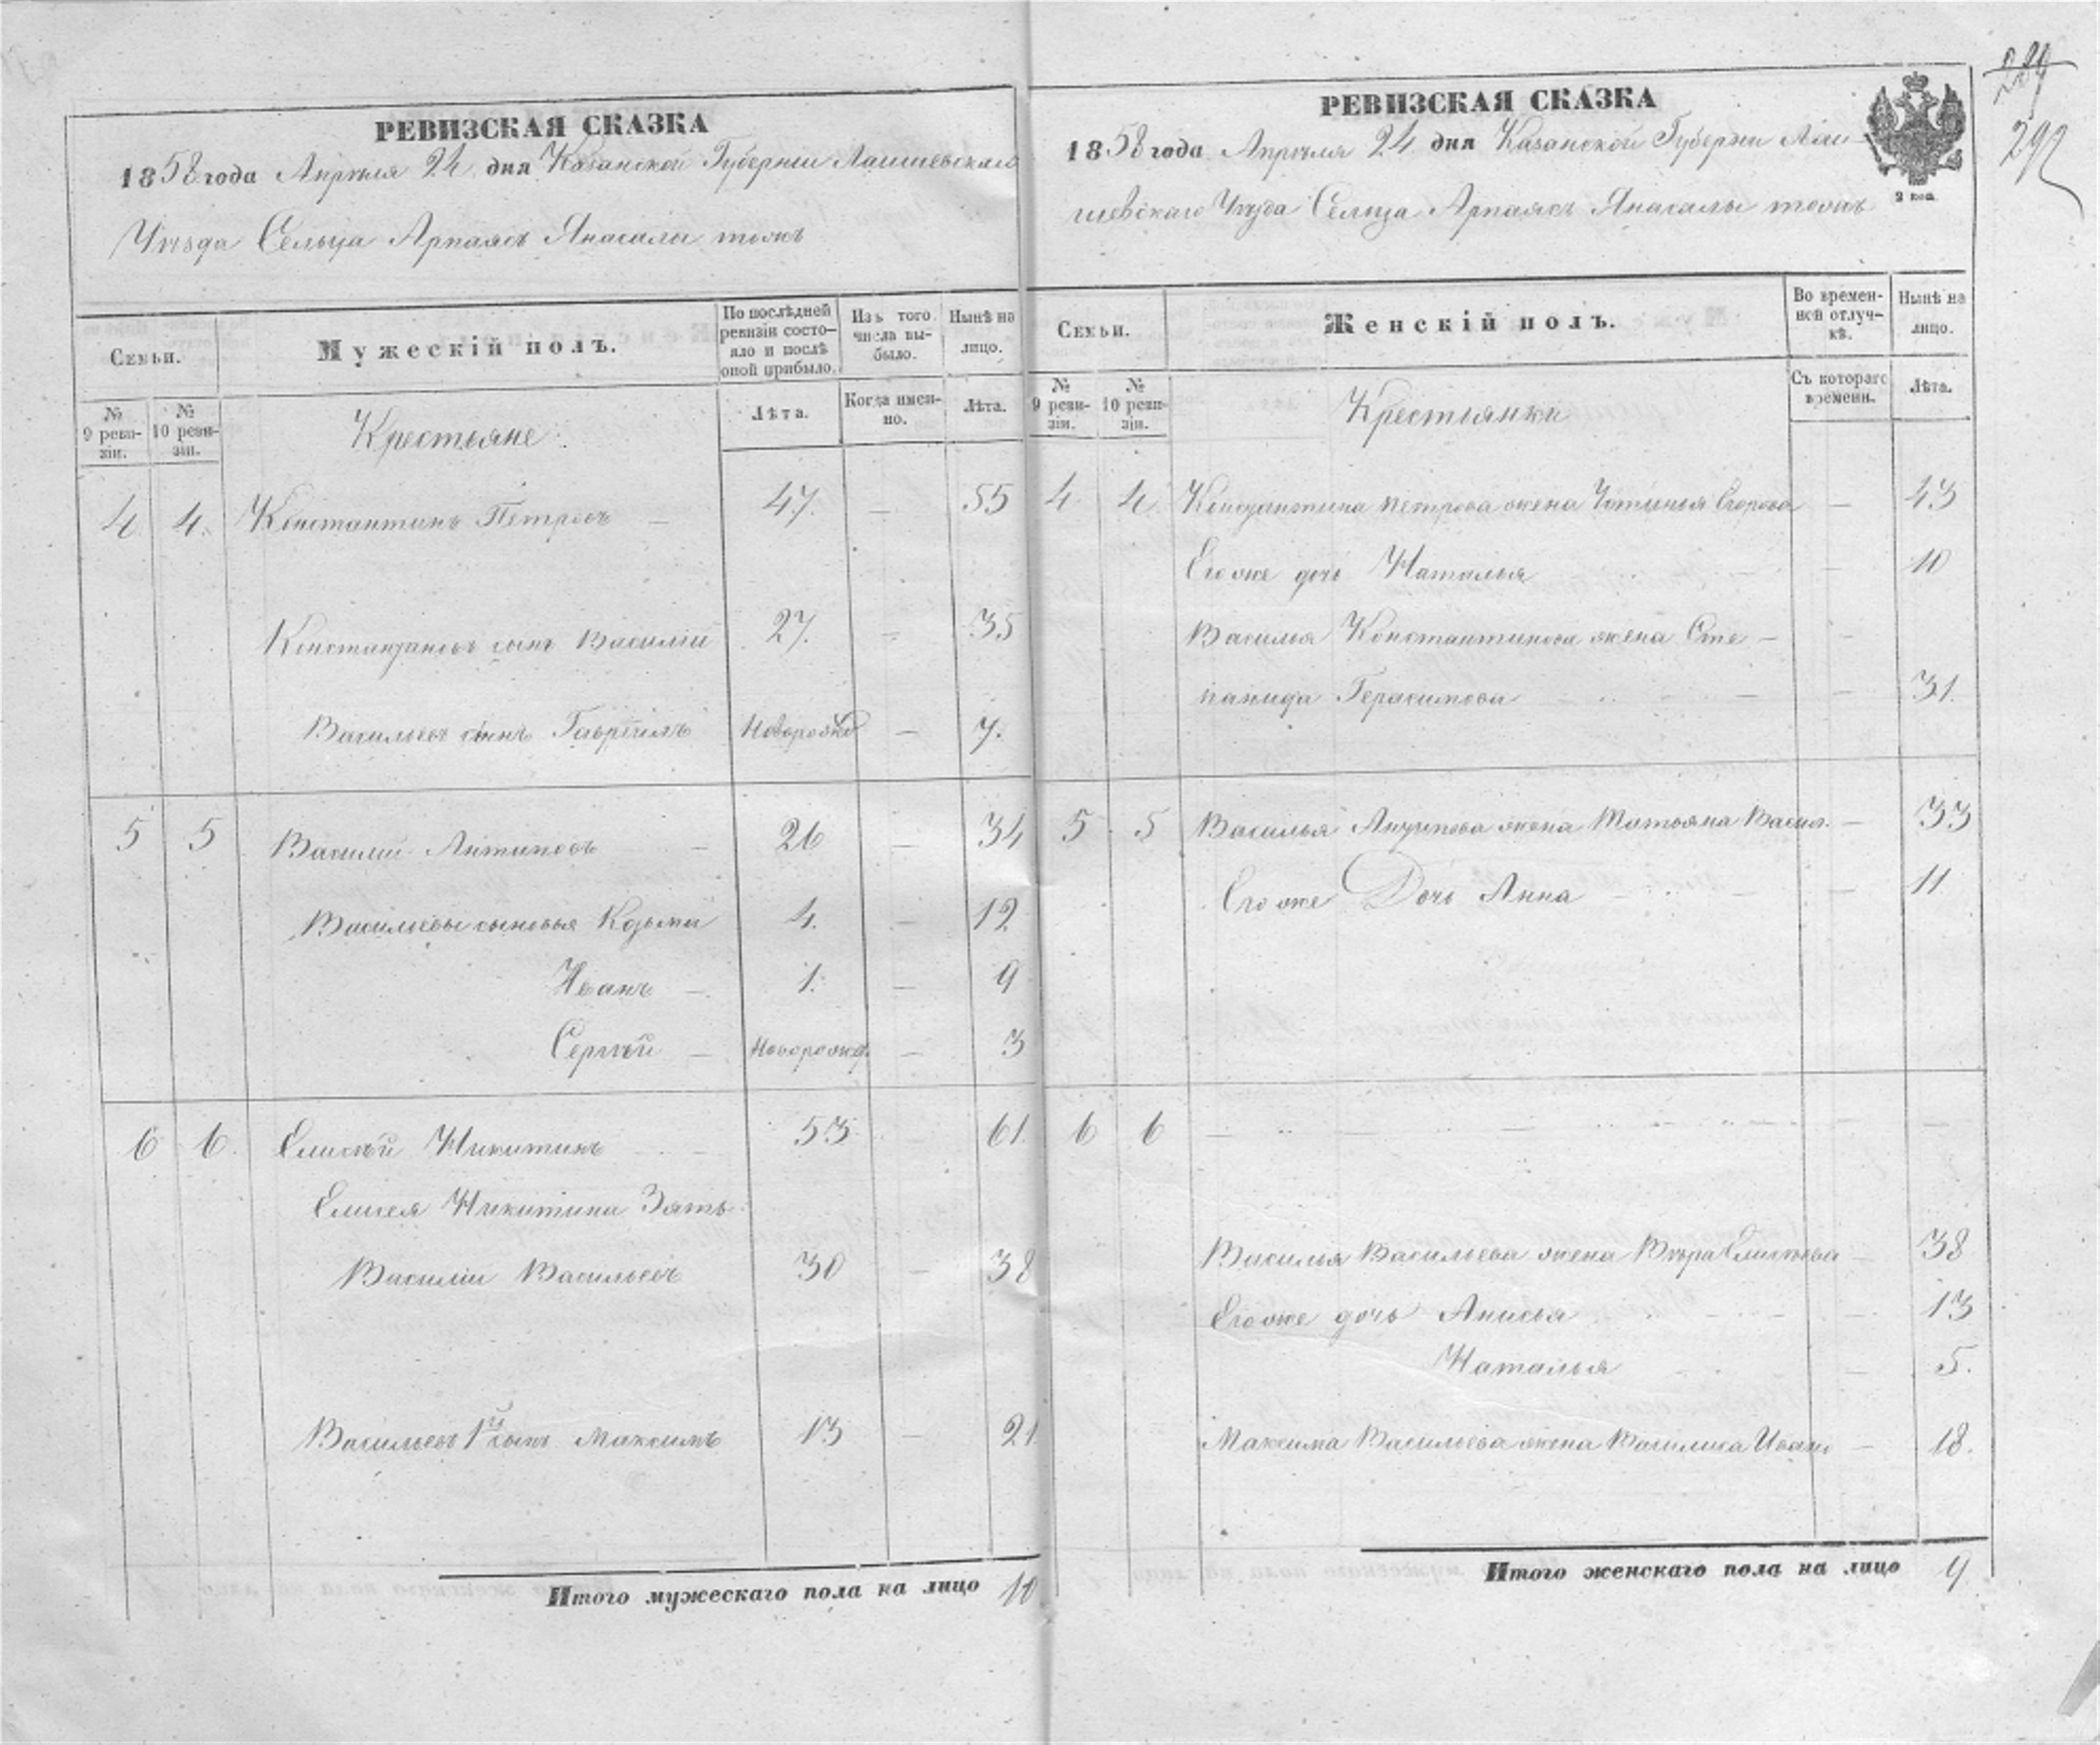 РЕВИЗСКАЯ СКАЗКА
1858 года Апрѣля 24 дня Казанской Губерніи Лаишевскаго
Уѣзда Сельца Арпаясъ Янасалы тожъ
Семьи.
Мужескій полъ.
По послѣдней ревизіи состояло и послѣ оной прибыло.
Изъ того числа выбыло.
Нынѣ на лицо.
№ 9 ревизіи.
№ 10 ревизіи.
Крестьяне
Лѣта.
Когда именно.
Лѣта.
4 4. Константинъ Петровъ — 47. — 55
Константиновъ сынъ Василій 27. — 35
Васильевъ сынъ Гаврiилъ Новорожд — 7.
5 5 Василій Антиповъ — 26 — 34
Васильевы сыновья Козьма 4. — 12
Иванъ — 1. — 9
Сергѣй — Новорожд. — 3
6 6. Елисѣй Никитинъ 53 61.
Елисея Никитина Зять
Василій Васильевъ 30 — 38
Васильевъ 1й сынъ Максимъ 13 — 21
Итого мужескаго пола на лицо 10
289
292
РЕВИЗСКАЯ СКАЗКА
1858 года Апрѣля 24 дня Казанской Губерніи Лаи-
шевскаго Уѣзда Сельца Арпаясъ Янасалы тожъ
2 коп.
Семьи.
Женскій полъ.
Во временной отлучкѣ.
Нынѣ на лицо.
№ 9 ревизіи.
№ 10 ревизіи.
Крестьянки
Съ котораго времени.
Лѣта.
4 4 Константина Петрова жена Устинья Егорова — 43
Его же дочь Наталья — 10
Василья Константинова жена Сте- —
панида Герасимова — 31.
5 5 Василья Антипова жена Татьяна Васил. — 33
Его же Дочь Анна — 11
6 6 — — — — —
Василья Васильева жена Вѣра Елисѣева — 38
Его же дочь Анисья — 13
Наталья — 5.
Максима Васильева жена Василиса Ивано — 18.
Итого женскаго пола на лицо 9